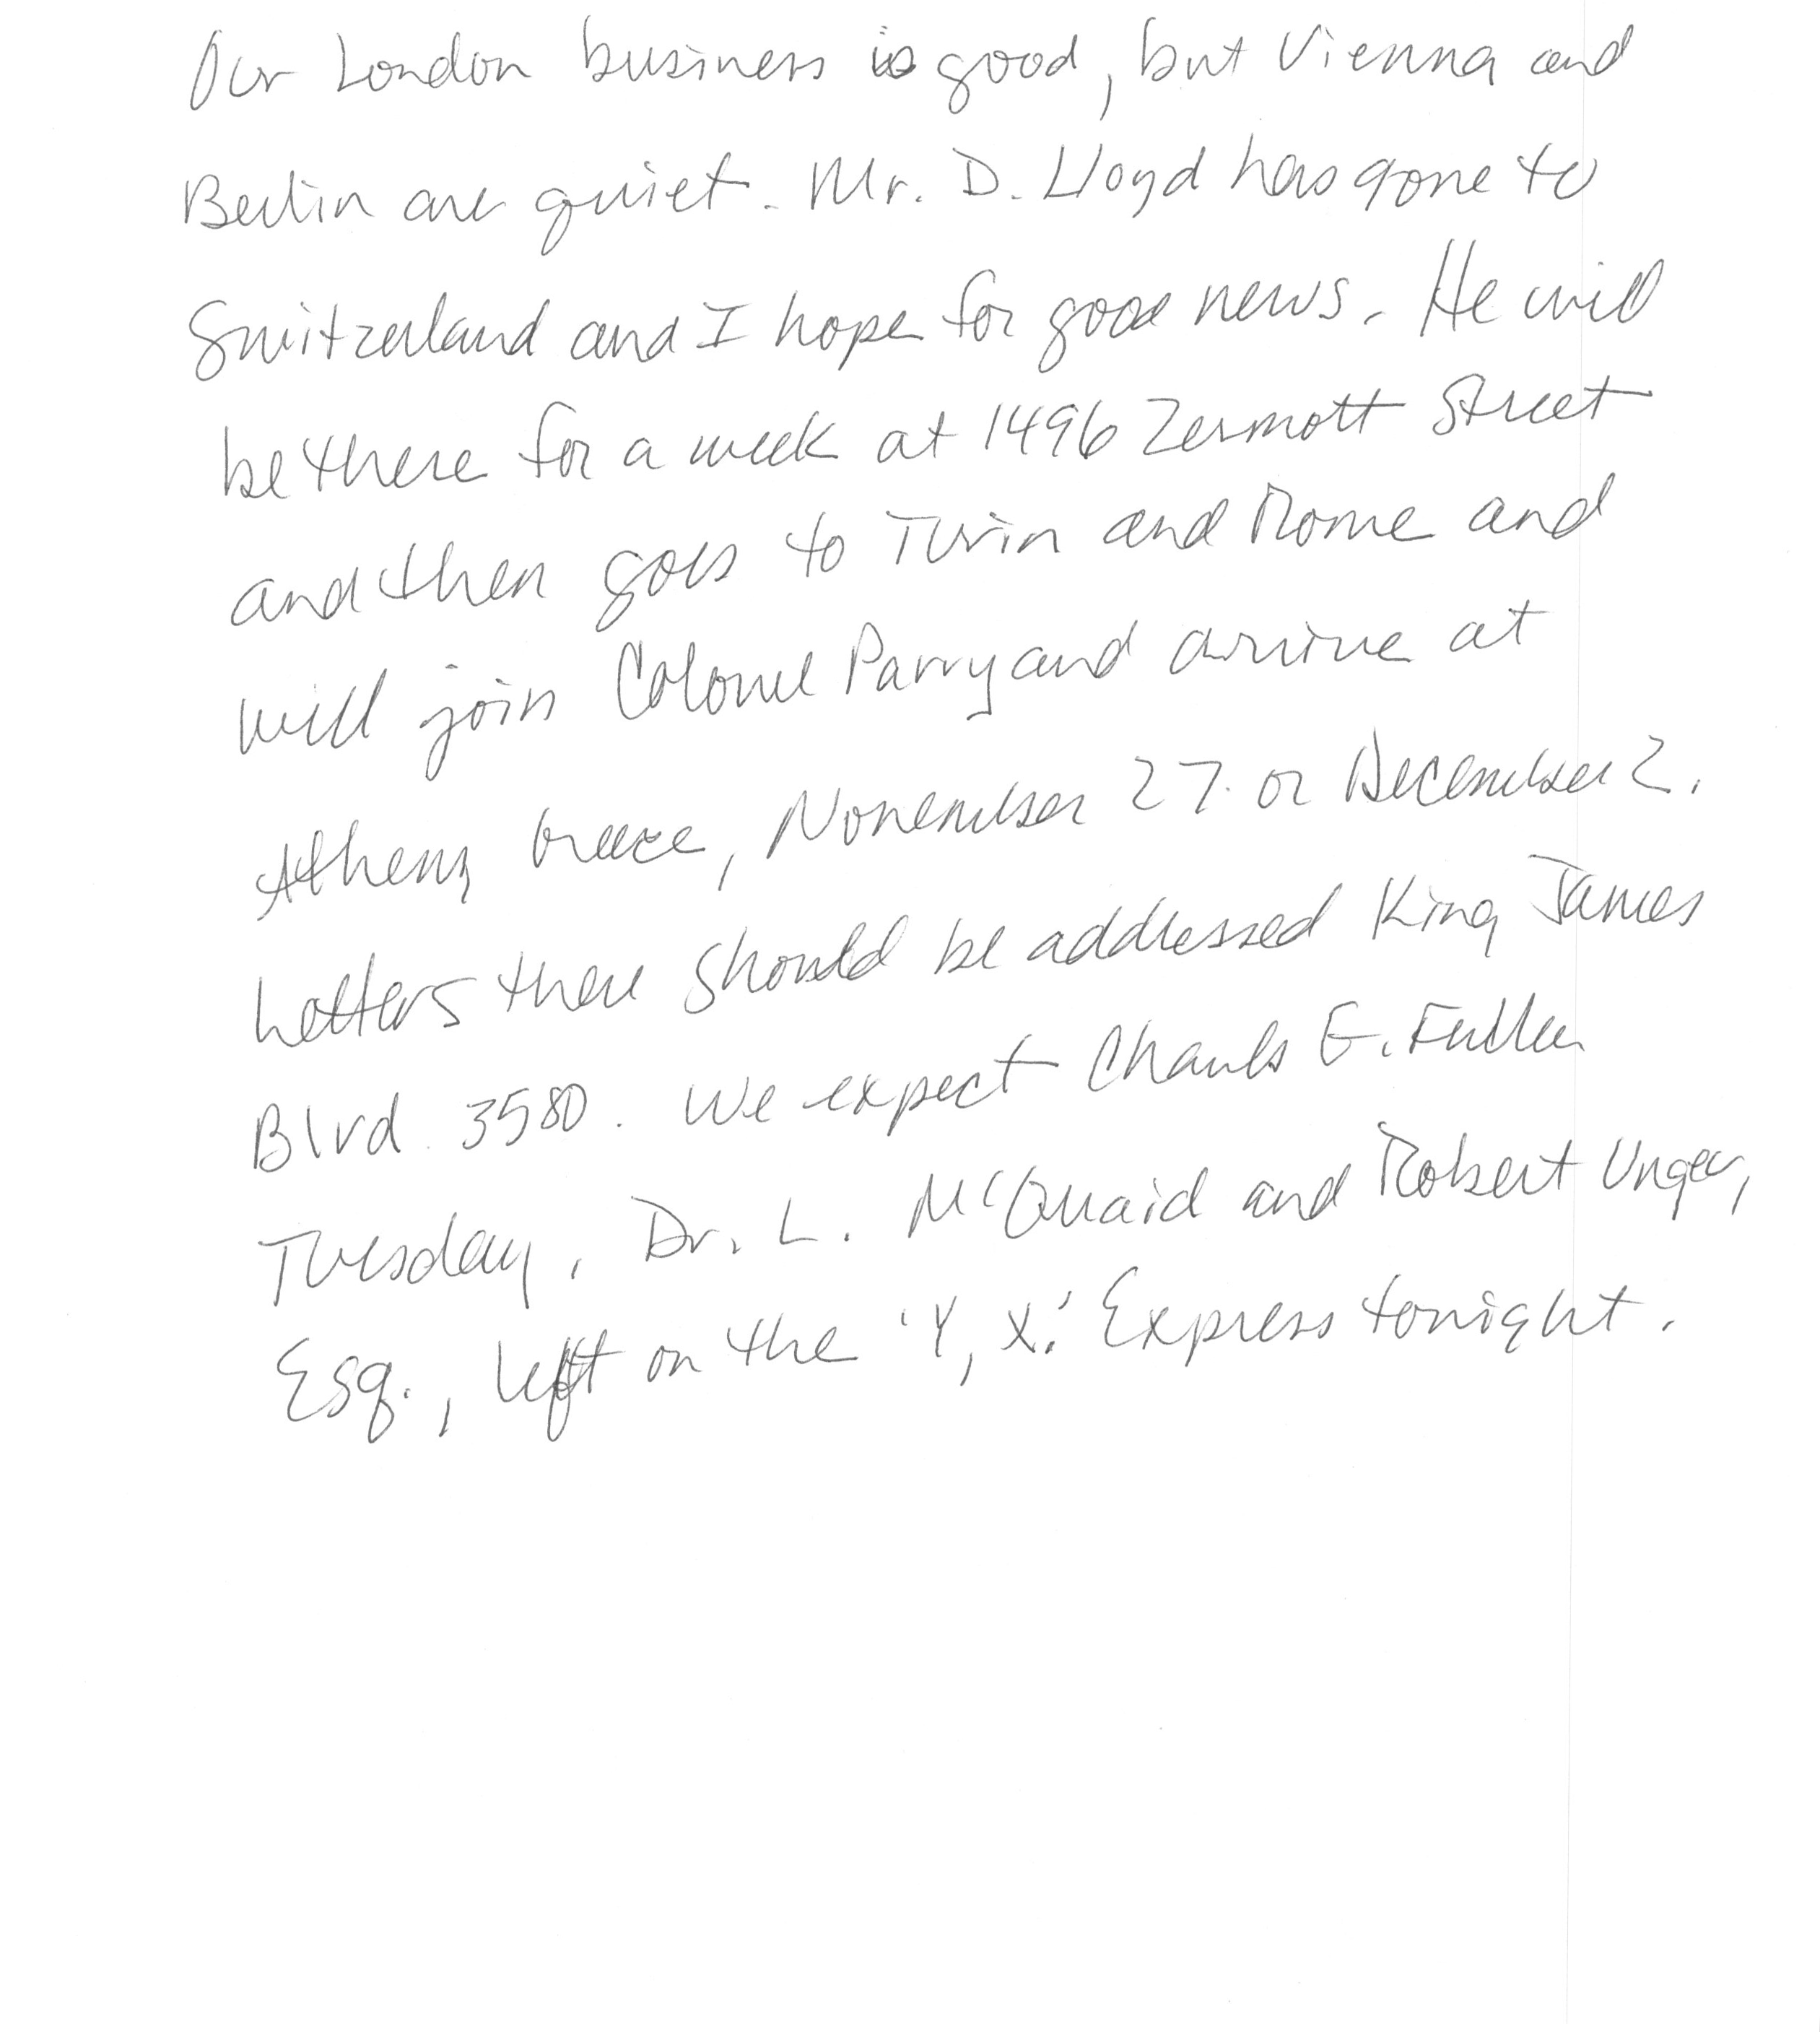 Our London business is good, but Vienna and
Berlin are quiet. Mr. D. Lloyd has gone to
Switzerland and I hope for good news. He will
be there for a week at 1496 Zermott Street
and then goes to Turin and Rome and
will join Colonel Parry and arrive at
Athens, Greece, November 27 or December 2.
Letters there should be addressed King James
Blvd. 3580. We expect Charles E. Fuller
Tuesday. Dr. L. McQuaid and Robert Unger,
Esq., left on the 'Y, X.' Express tonight.